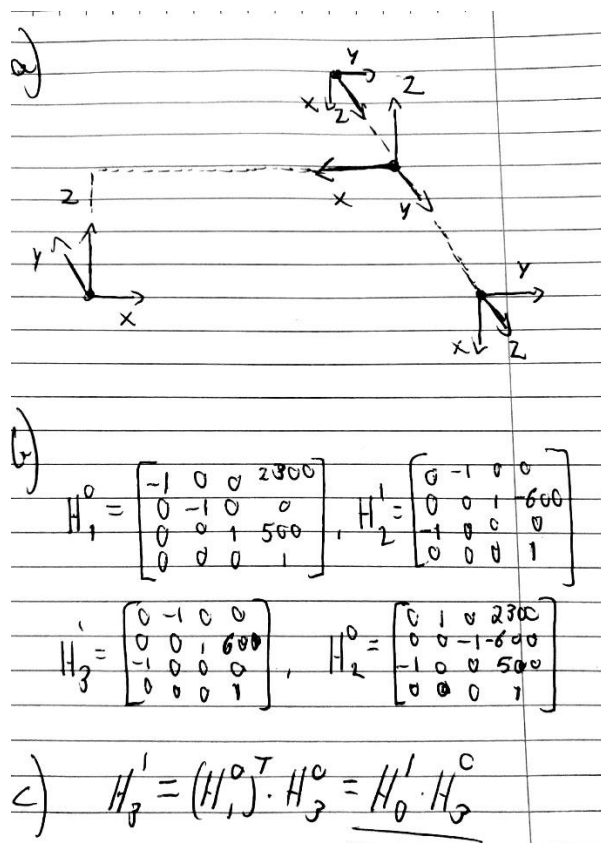 a)
Y
X Z Z
X
Z Y
Y Y
X X Z
b)
H₁⁰ = [-1 0 0 2300; 0 -1 0 0; 0 0 1 500; 0 0 0 1], H₂¹ = [0 -1 0 0; 0 0 1 -600; -1 0 0 0; 0 0 0 1]
H₃¹ = [0 -1 0 0; 0 0 1 600; -1 0 0 0; 0 0 0 1], H₂⁰ = [0 1 0 2300; 0 0 -1 -600; -1 0 0 500; 0 0 0 1]
c) H₃¹ = (H₁⁰)ᵀ · H₃⁰ = H₀¹ · H₃⁰